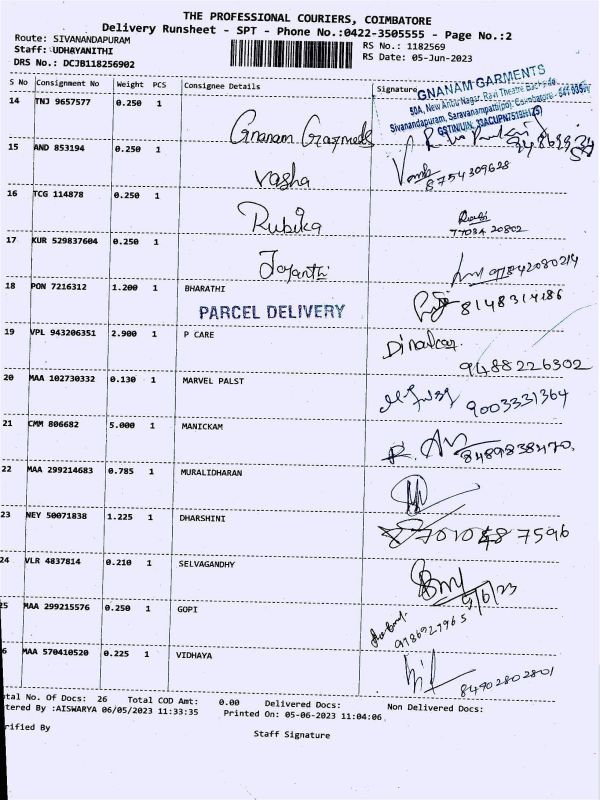 THE PROFESSIONAL COURIERS, COIMBATORE
Delivery Runsheet - SPT - Phone No.:0422-3505555 - Page No.:2
Route: SIVANANDAPURAM
RS No.: 1182569
Staff: UDHAYANITHI
RS Date: 05-Jun-2023
DRS No.: DCJB118256902
S No Consignment No Weight PCS Consignee Details Signature
GNANAM GARMENTS
50A, New Anbu Nagar, Ravi Theatre Backside
Sivanandapuram, Saravanampatti(po), Coimbatore - 641 035
14 TNJ 9657577 0.250 1 Gnanam Garments
15 AND 853194 0.250 1 Vasha
8754309628
16 TCG 114878 0.250 1 Rubika
77034 20802
17 KUR 529837604 0.250 1 Jayanthi
97842080214
18 PON 7216312 1.200 1 BHARATHI
8148314186
PARCEL DELIVERY
19 VPL 943206351 2.900 1 P CARE
9488226302
20 MAA 102730332 0.130 1 MARVEL PALST
9003331364
21 CMM 806682 5.000 1 MANICKAM
8489838470
22 MAA 299214683 0.785 1 MURALIDHARAN
23 NEY 50071838 1.225 1 DHARSHINI
24 VLR 4837814 0.210 1 SELVAGANDHY
5/6/23
25 MAA 299215576 0.250 1 GOPI
6 MAA 570410520 0.225 1 VIDHAYA
84902802801
otal No. Of Docs: 26 Total COD Amt: 0.00 Delivered Docs: Non Delivered Docs:
tered By :AISWARYA 06/05/2023 11:33:35 Printed On: 05-06-2023 11:04:06
rified By
Staff Signature